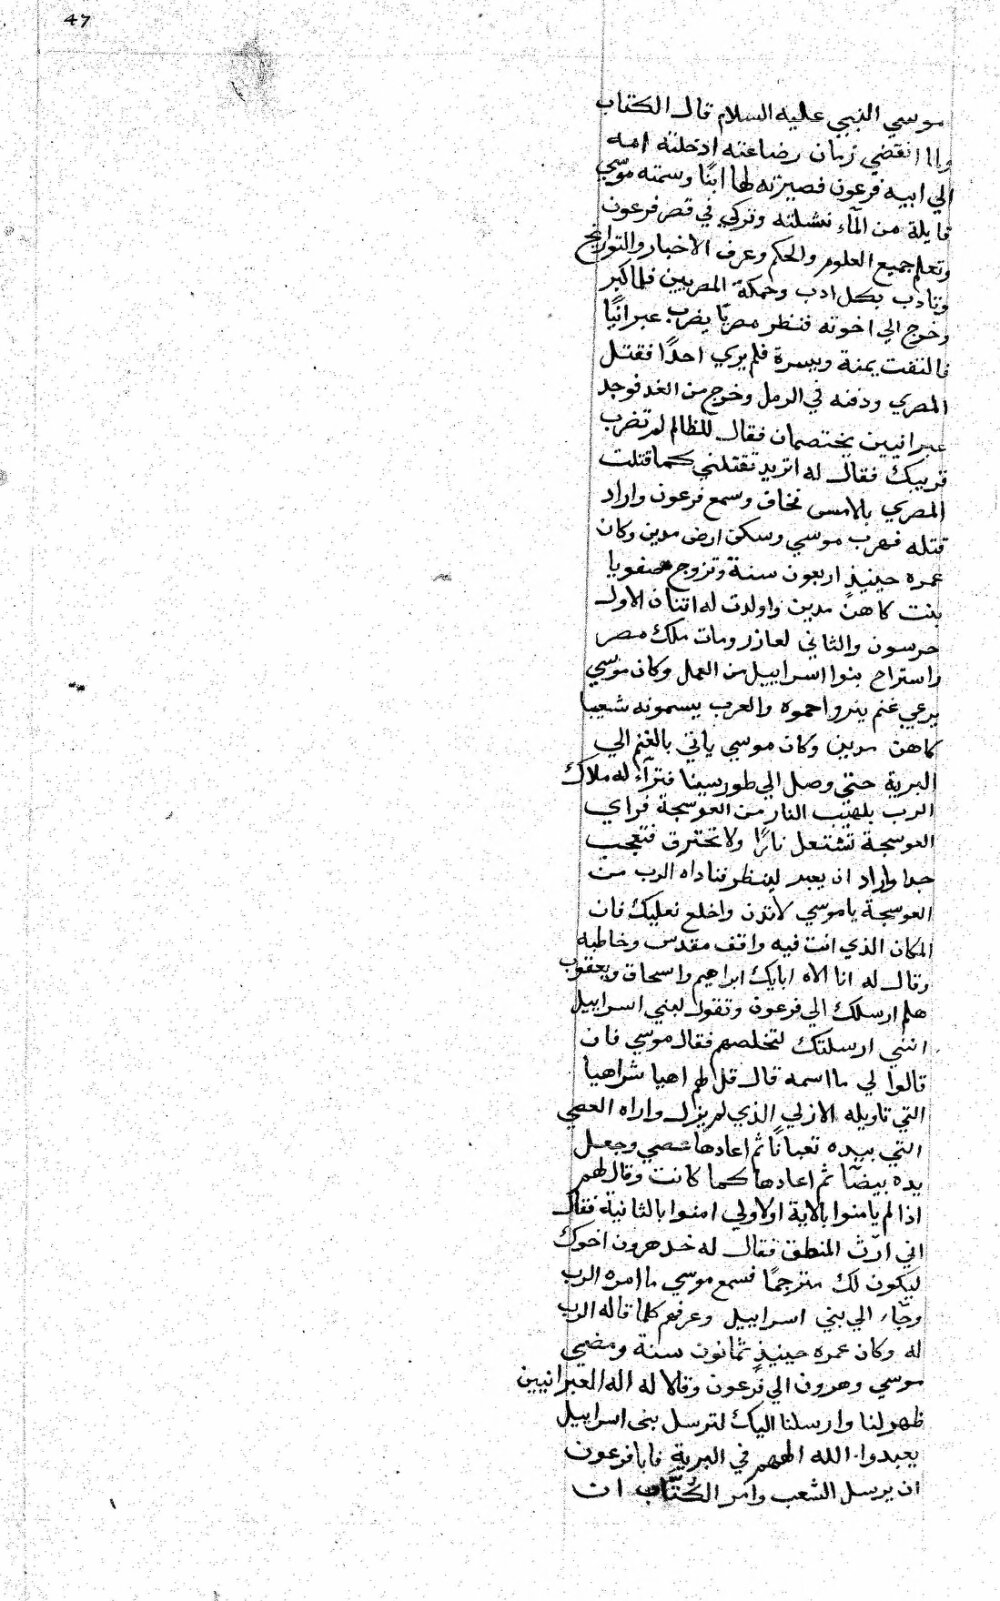 47
موسي النبي عليه السلام قال الكتاب
ولما انقضي زمان رضاعته ادخلته امه
الي ابيه فرعون فصيرته لها ابنًا وسمته موسي
قايلة من المآء نشلته وتركي في قصر فرعون
وتعلم جميع العلوم والحكم وعرف الاخبار والتواريخ
وتادب بكل ادب وحمكة المصريين فلما كبر
وخرج الي اخوته فنظر مصريًا يضرب عبرانيًا
فالتفت يمنة ويسرة فلم يري احدًا فقتل
المصري ودفنه في الرمل وخرج من الغد فوجد
عبرانيين يختصمان فقال للظالم لم تضرب
قريبك فقال له اتريد تقتلني كما قتلت
المصري بالامس نخاف وسمع فرعون واراد
قتله فهرب موسي وسكن ارض مدين وكان
عمره حينيذٍ اربعون سنة وتزوج صفويا
بنت كاهن مدين واولدت له اتنان الاول
جرسون والثاني لعازر ومات ملك مصر
واستراح بنوا اسراييل من العمل وكان موسي
يرعي غنم يثروا حموه والعرب يسمونه شعيبا
كاهن مدين وكان موسي ياتي بالغنم الي
البرية حتي وصل الي طور سينا فترآء له ملاك
الرب بلهيب النار من العوسجة فراي
العوسجة تشتعل نارًا ولا تحترق فتعجب
جدا واراد ان يعبر لينظر فناداه الرب من
العوسجة يا موسي لا تدن واخلع نعليك فان
المكان الذي انت فيه واقف مقدس وخاطبه
وقال له انا الاه ابايك ابراهيم واسحاق ويعقوب
هلم ارسلك الي فرعون وتقول لبني اسراييل
انني ارسلتك لتخلصهم فقال موسي فان
قالوا لي ما اسمه قال قل لهم اهيا شراهيا
التي تاويله الازلي الذي لم يزل واراه العصي
التي بيده تعبانًا ثم اعادها عصي وجعل
يده بيضآ ثم اعادها كما كانت وقال لهم
اذا لم يامنوا بالاية اولاولي امنوا بالثانية فقال
اني ارّث المنطق فقال له خد هرون اخوك
ليكون لك مترجمًا فسمع موسي ما امره الرب
وجآء الي بني اسراييل وعرفهم كلما قاله الرب
له وكان عمره حينيذٍ ثمانون سنة ومضي
موسي وهرون الي فرعون وقالا له اله العبرانيين
ظهر لنا وارسلنا اليك لترسل بني اسراييل
يعبدوا الله الههم في البرية فابا فرعون
ان يرسل الشعب وامر الكتاب ان